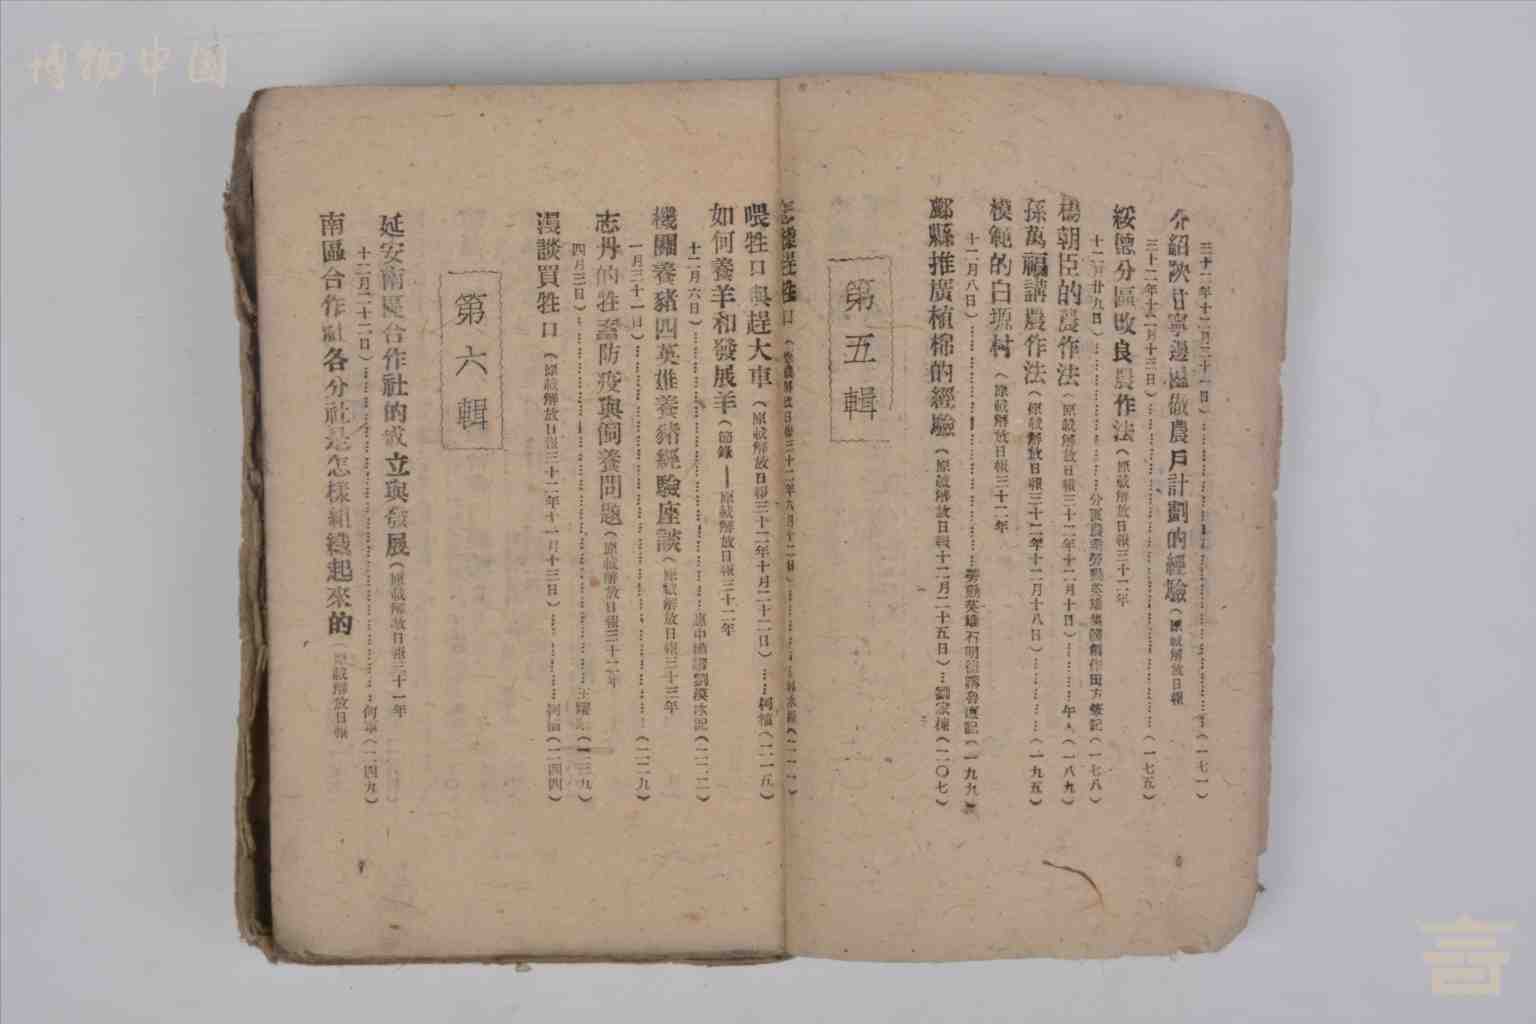 博物中国
三十二年十二月三十一日）……（一七一）
介紹陝甘寧邊區做農戶計劃的經驗（原載解放日報
三十二年十二月十三日）……（一七五）
綏德分區改良農作法（原載解放日報三十二年
十二月廿九日）……分區農業勞動英雄集體創作田方筆記（一七八）
楊朝臣的農作法（原載解放日報三十二年十二月十日）……午人（一八九）
孫萬福講農作法（原載解放日報三十二年十二月十八日）……（一九五）
模範的白塬村（原載解放日報三十二年
十二月八日）……勞動英雄石明德講（一九九）
鄜縣推廣植棉的經驗（原載解放日報十二月二十五日）…劉家棟（二〇七）
第五輯
怎樣 牲口（原載解放日報三十二年六月十二日）……
喂牲口與趕大車（原載解放日報三十二年十月二十二日）……柯楅（二一五）
如何養羊和發展羊（節錄——原載解放日報三十二年
十二月六日）……劉漠冰記（二二二）
機關養豬四英雄養豬經驗座談（原載解放日報三十三年
一月三十一日）……（二二九）
志丹的牲畜防疫與飼養問題（原載解放日報三十二年
四月三日）……（二三九）
漫談買牲口（原載解放日報三十二年十一月十三日）……（二四四）
第六輯
延安南區合作社的成立與發展（原載解放日報三十一年
十二月二十二日）……（二四九）
南區合作社各分社是怎樣組織起來的（原載解放日報